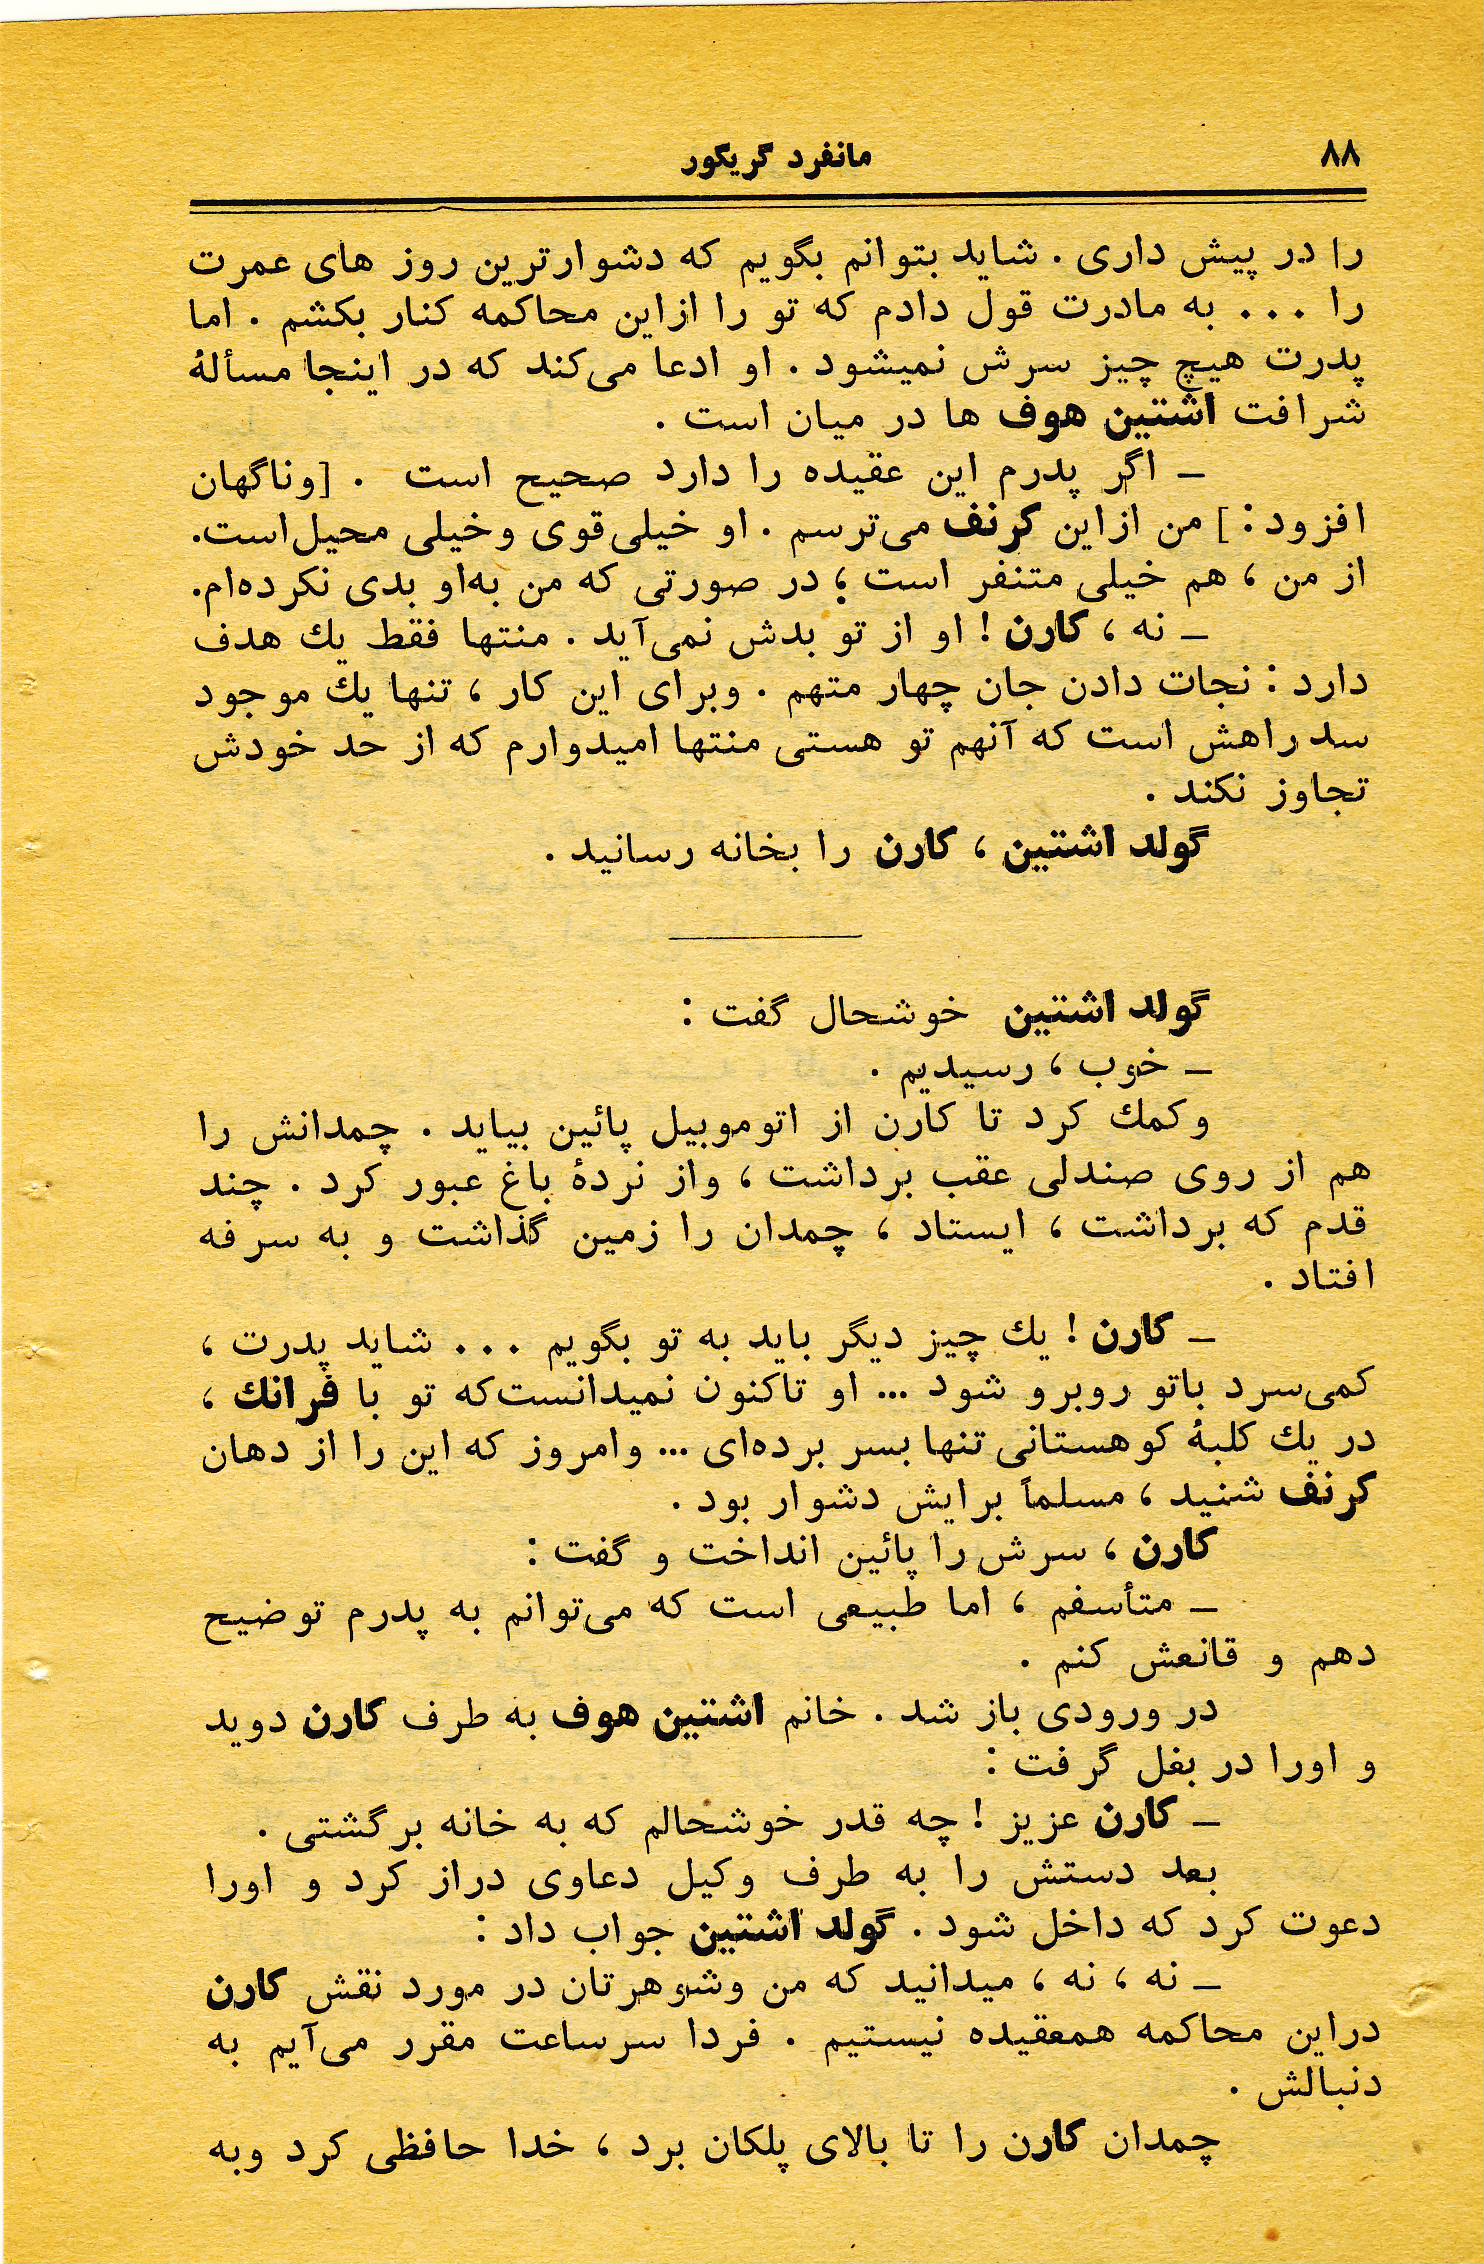 ۸۸
مانفرد گریگور
را در پیش داری . شاید بتوانم بگویم که دشوارترین روز های عمرت
را . . . به مادرت قول دادم که تو را ازاین محاکمه کنار بکشم . اما
پدرت هیچ چیز سرش نمیشود . او ادعا می‌کند که در اینجا مسألهٔ
شرافت اشتین هوف ها در میان است .
ــ اگر پدرم این عقیده را دارد صحیح است . [وناگهان
افزود : ] من ازاین کرنف می‌ترسم . او خیلی‌قوی وخیلی محیل‌است.
از من ، هم خیلی متنفر است ؛ در صورتی که من به‌او بدی نکرده‌ام.
ــ نه ، کارن ! او از تو بدش نمی‌آید . منتها فقط یك هدف
دارد : نجات دادن جان چهار متهم . وبرای این کار ، تنها یك موجود
سد راهش است که آنهم تو هستی منتها امیدوارم که از حد خودش
تجاوز نکند .
گولد اشتین ، کارن را بخانه رسانید .
گولد اشتین خوشحال گفت :
ــ خوب ، رسیدیم .
وکمك کرد تا کارن از اتوموبیل پائین بیاید . چمدانش را
هم از روی صندلی عقب برداشت ، واز نردهٔ باغ عبور کرد . چند
قدم که برداشت ، ایستاد ، چمدان را زمین گذاشت و به سرفه
افتاد .
ــ کارن ! یك چیز دیگر باید به تو بگویم . . . شاید پدرت ،
کمی‌سرد باتو روبرو شود ... او تاکنون نمیدانست‌که تو با فرانك ،
در یك کلبهٔ کوهستانی تنها بسر برده‌ای ... وامروز که این را از دهان
کرنف شنید ، مسلماً برایش دشوار بود .
کارن ، سرش را پائین انداخت و گفت :
ــ متأسفم ، اما طبیعی است که می‌توانم به پدرم توضیح
دهم و قانعش کنم .
در ورودی باز شد . خانم اشتین هوف به طرف کارن دوید
و اورا در بغل گرفت :
ــ کارن عزیز ! چه قدر خوشحالم که به خانه برگشتی .
بعد دستش را به طرف وکیل دعاوی دراز کرد و اورا
دعوت کرد که داخل شود . گولد اشتین جواب داد :
ــ نه ، نه ، میدانید که من وشوهرتان در مورد نقش کارن
دراین محاکمه همعقیده نیستیم . فردا سرساعت مقرر می‌آیم به
دنبالش .
چمدان کارن را تا بالای پلکان برد ، خدا حافظی کرد وبه